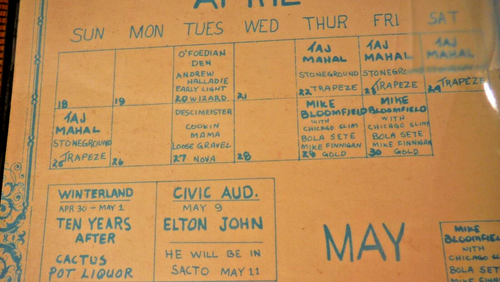 APRIL
SUN MON TUES WED THUR FRI SAT
18
19
O'FOEDIAN
DEN
ANDREW
HALLADIE
EARLY LIGHT
20 WIZARD
21
TAJ
MAHAL
STONEGROUND
22 TRAPEZE
TAJ
MAHAL
STONEGROUND
23 TRAPEZE
TAJ
MAHAL
24 TRAPEZE
TAJ
MAHAL
STONEGROUND
25 TRAPEZE
26
DESCIMEISTER
COOKIN
MAMA
LOOSE GRAVEL
27 NOVA
28
MIKE
BLOOMFIELD
WITH
CHICAGO SLIM
BOLA SETE
MIKE FINNIGAN
29 GOLD
MIKE
BLOOMFIELD
WITH
CHICAGO SLIM
BOLA SETE
MIKE FINNIGAN
30 GOLD
WINTERLAND
APR 30 - MAY 1
TEN YEARS
AFTER
CACTUS
POT LIQUOR
CIVIC AUD.
MAY 9
ELTON JOHN
HE WILL BE IN
SACTO MAY 11
MAY
MIKE
BLOOMFIELD
WITH
CHICAGO SLIM
BOLA SETE